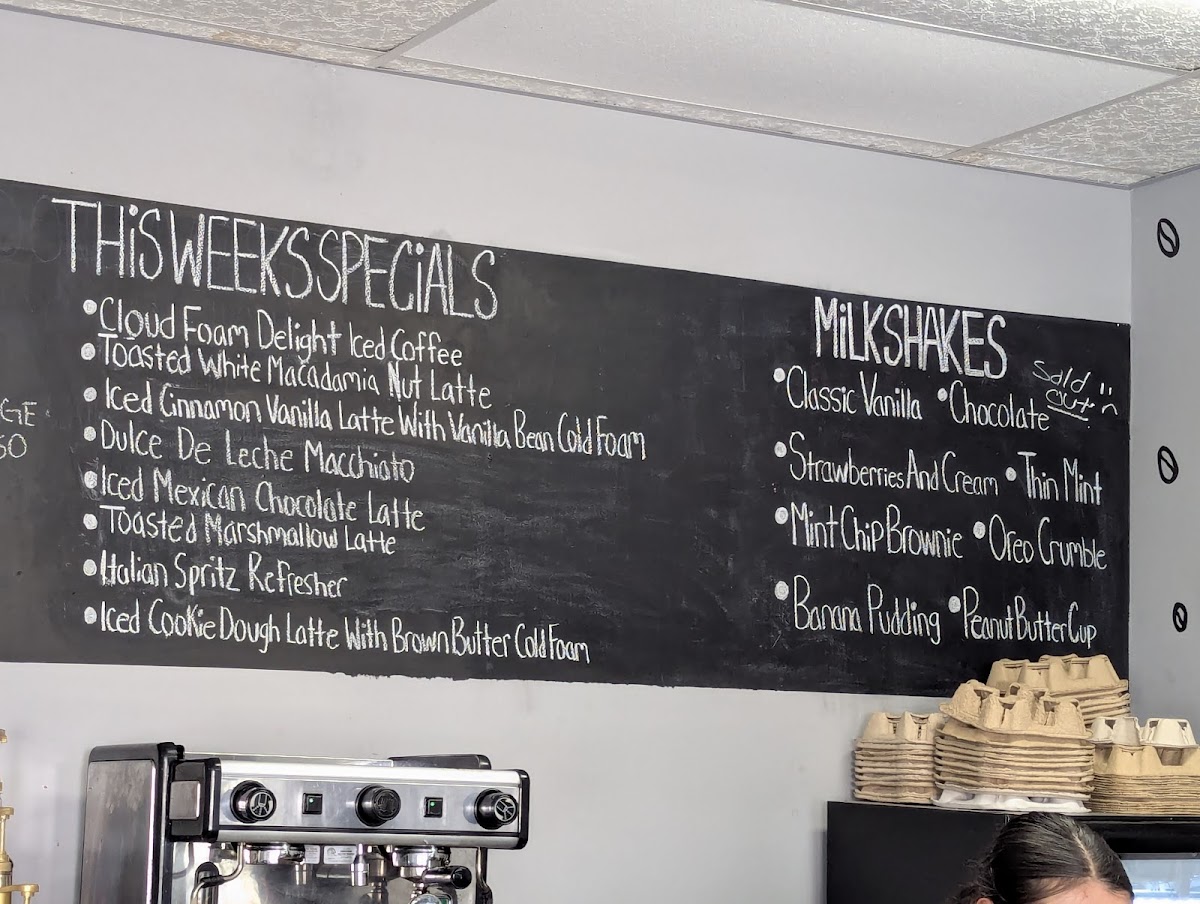 THiS WEEKS SPECiALS
•Cloud Foam Delight Iced Coffee
•Toasted White Macadamia Nut Latte
•Iced Cinnamon Vanilla Latte With Vanilla Bean Cold Foam
•Dulce De Leche Macchiato
•Iced Mexican Chocolate Latte
•Toasted Marshmallow Latte
•Italian Spritz Refresher
•Iced Cookie Dough Latte With Brown Butter Cold Foam
GE
50
MiLKSHAKES
Sold
out
•Classic Vanilla •Chocolate
•Strawberries And Cream •Thin Mint
•Mint Chip Brownie •Oreo Crumble
•Banana Pudding •Peanut Butter Cup